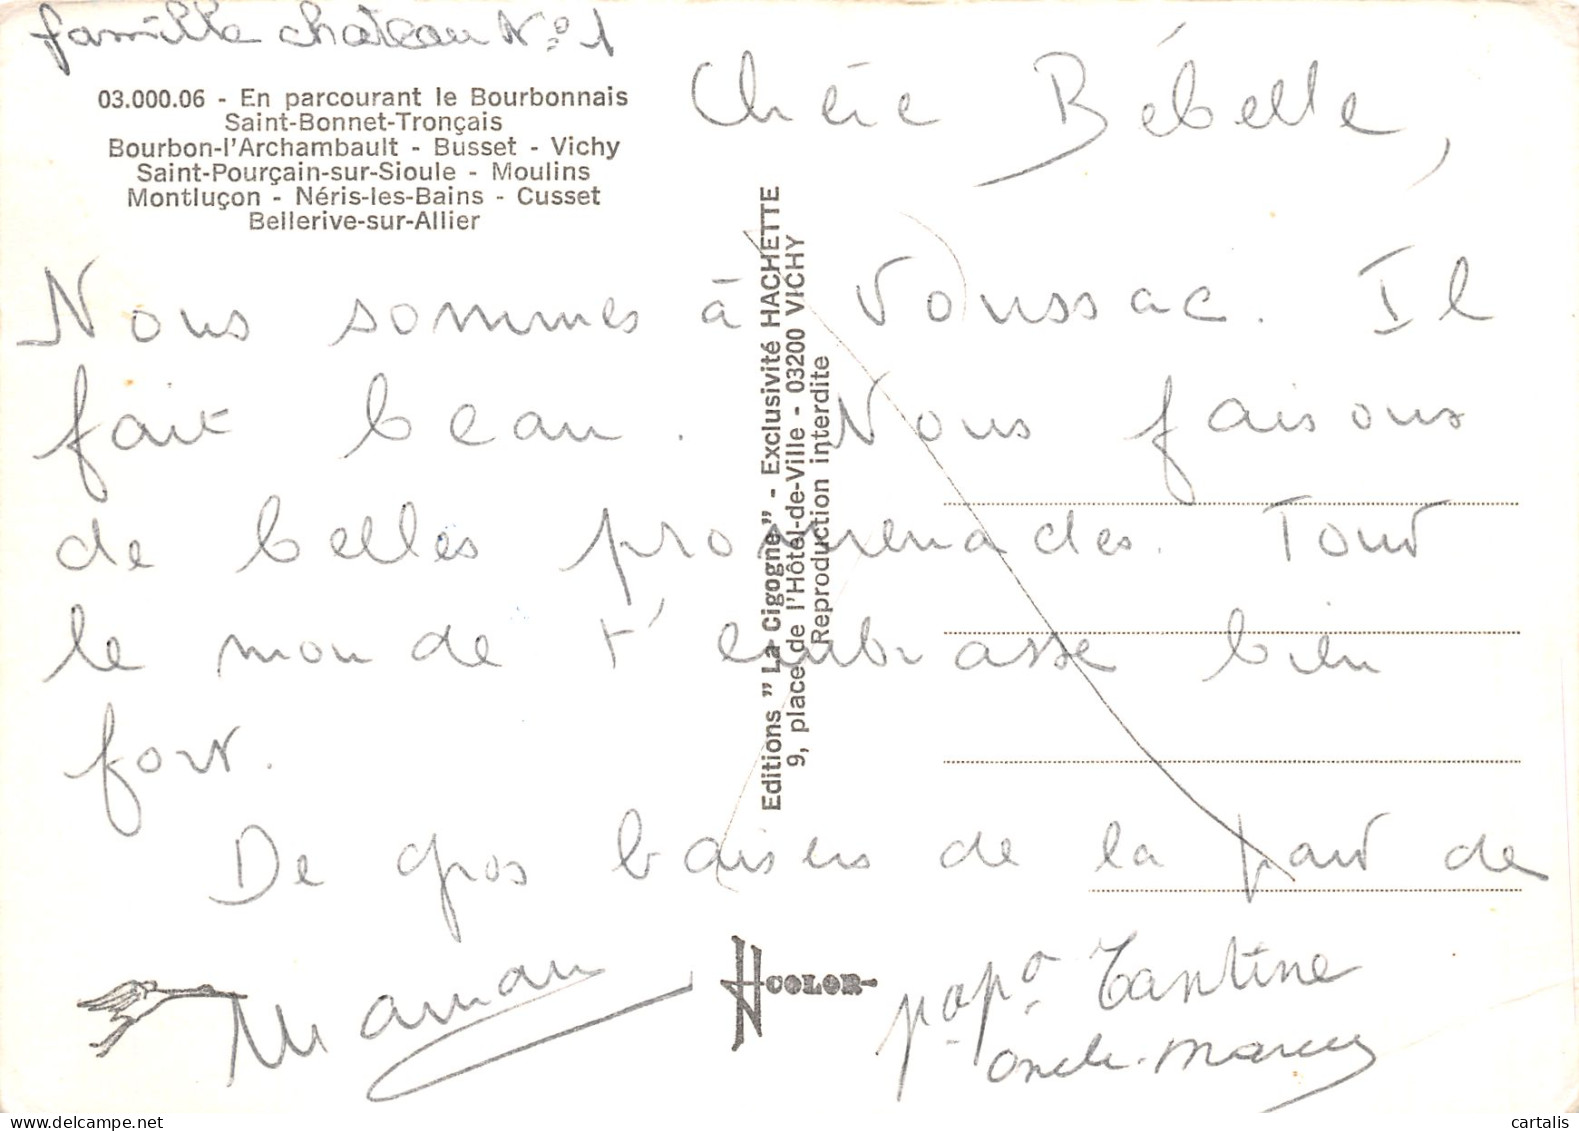 famille chateau N° 1
03.000.06 - En parcourant le Bourbonnais
Saint-Bonnet-Tronçais
Bourbon-l'Archambault - Busset - Vichy
Saint-Pourçain-sur-Sioule - Moulins
Montluçon - Néris-les-Bains - Cusset
Bellerive-sur-Allier
Chérie Bébelle,
Nous sommes à Voussac. Il
fait beau. Nous faisons
de belles promenades. Tout
le monde t'embrasse bien
fort.
De gros baisers de la part de
Maman
papa Tantine
oncle Marcel
Editions " La Cigogne" - Exclusivité HACHETTE
9, place de l'Hôtel-de-Ville - 03200 VICHY
Reproduction interdite
COLOR
cartalis
delcampe.net